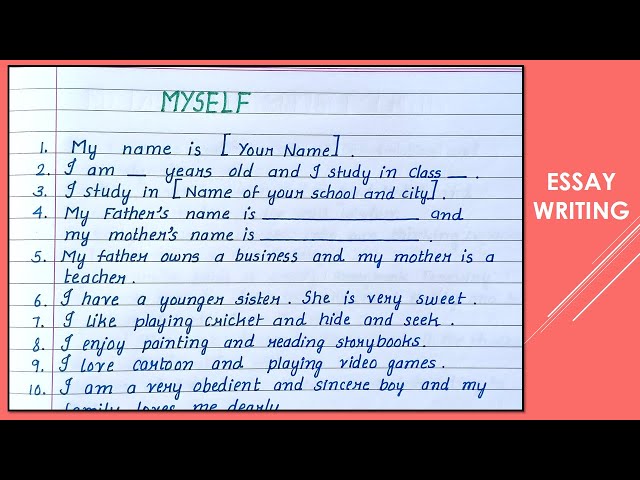 MYSELF
1. My name is [Your Name].
2. I am __ years old and I study in class __.
3. I study in [Name of your school and city].
4. My Father's name is ______________ and
my mother's name is ______________.
5. My father owns a business and my mother is a
teacher.
6. I have a younger sister. She is very sweet.
7. I like playing cricket and hide and seek.
8. I enjoy painting and reading storybooks.
9. I love cartoon and playing video games.
10. I am a very obedient and sincere boy and my
family loves me dearly
ESSAY
WRITING